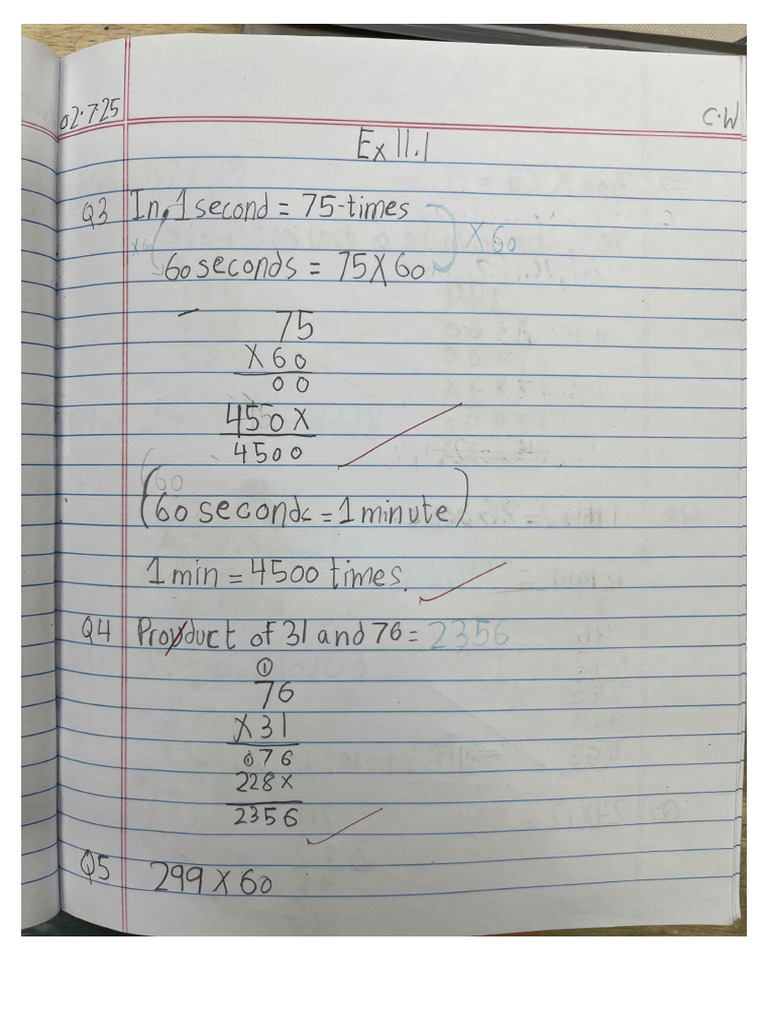 02.7.25
C.W
Ex 11.1
Q3 In 1 second = 75 times
X60
X 60
60 seconds = 75 X 60
75
X 60
00
4550 X
4500
60
(60 seconds = 1 minute)
1 min = 4500 times.
Q4 Product of 31 and 76 = 2356
1
76
X 31
076
228 X
2356
Q5 299 X 60